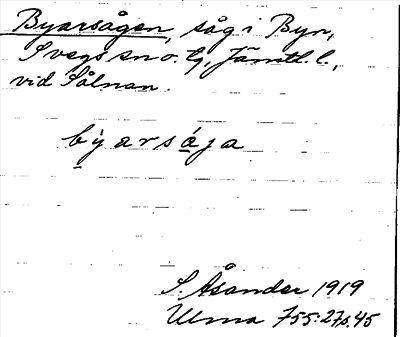 Byarsågen, såg i Byn,
Svegs sn o. tg, Jämtl. l.,
vid Sålnan.
by̆arsája
S. Åsander 1919
Ulma 755:27 s. 45